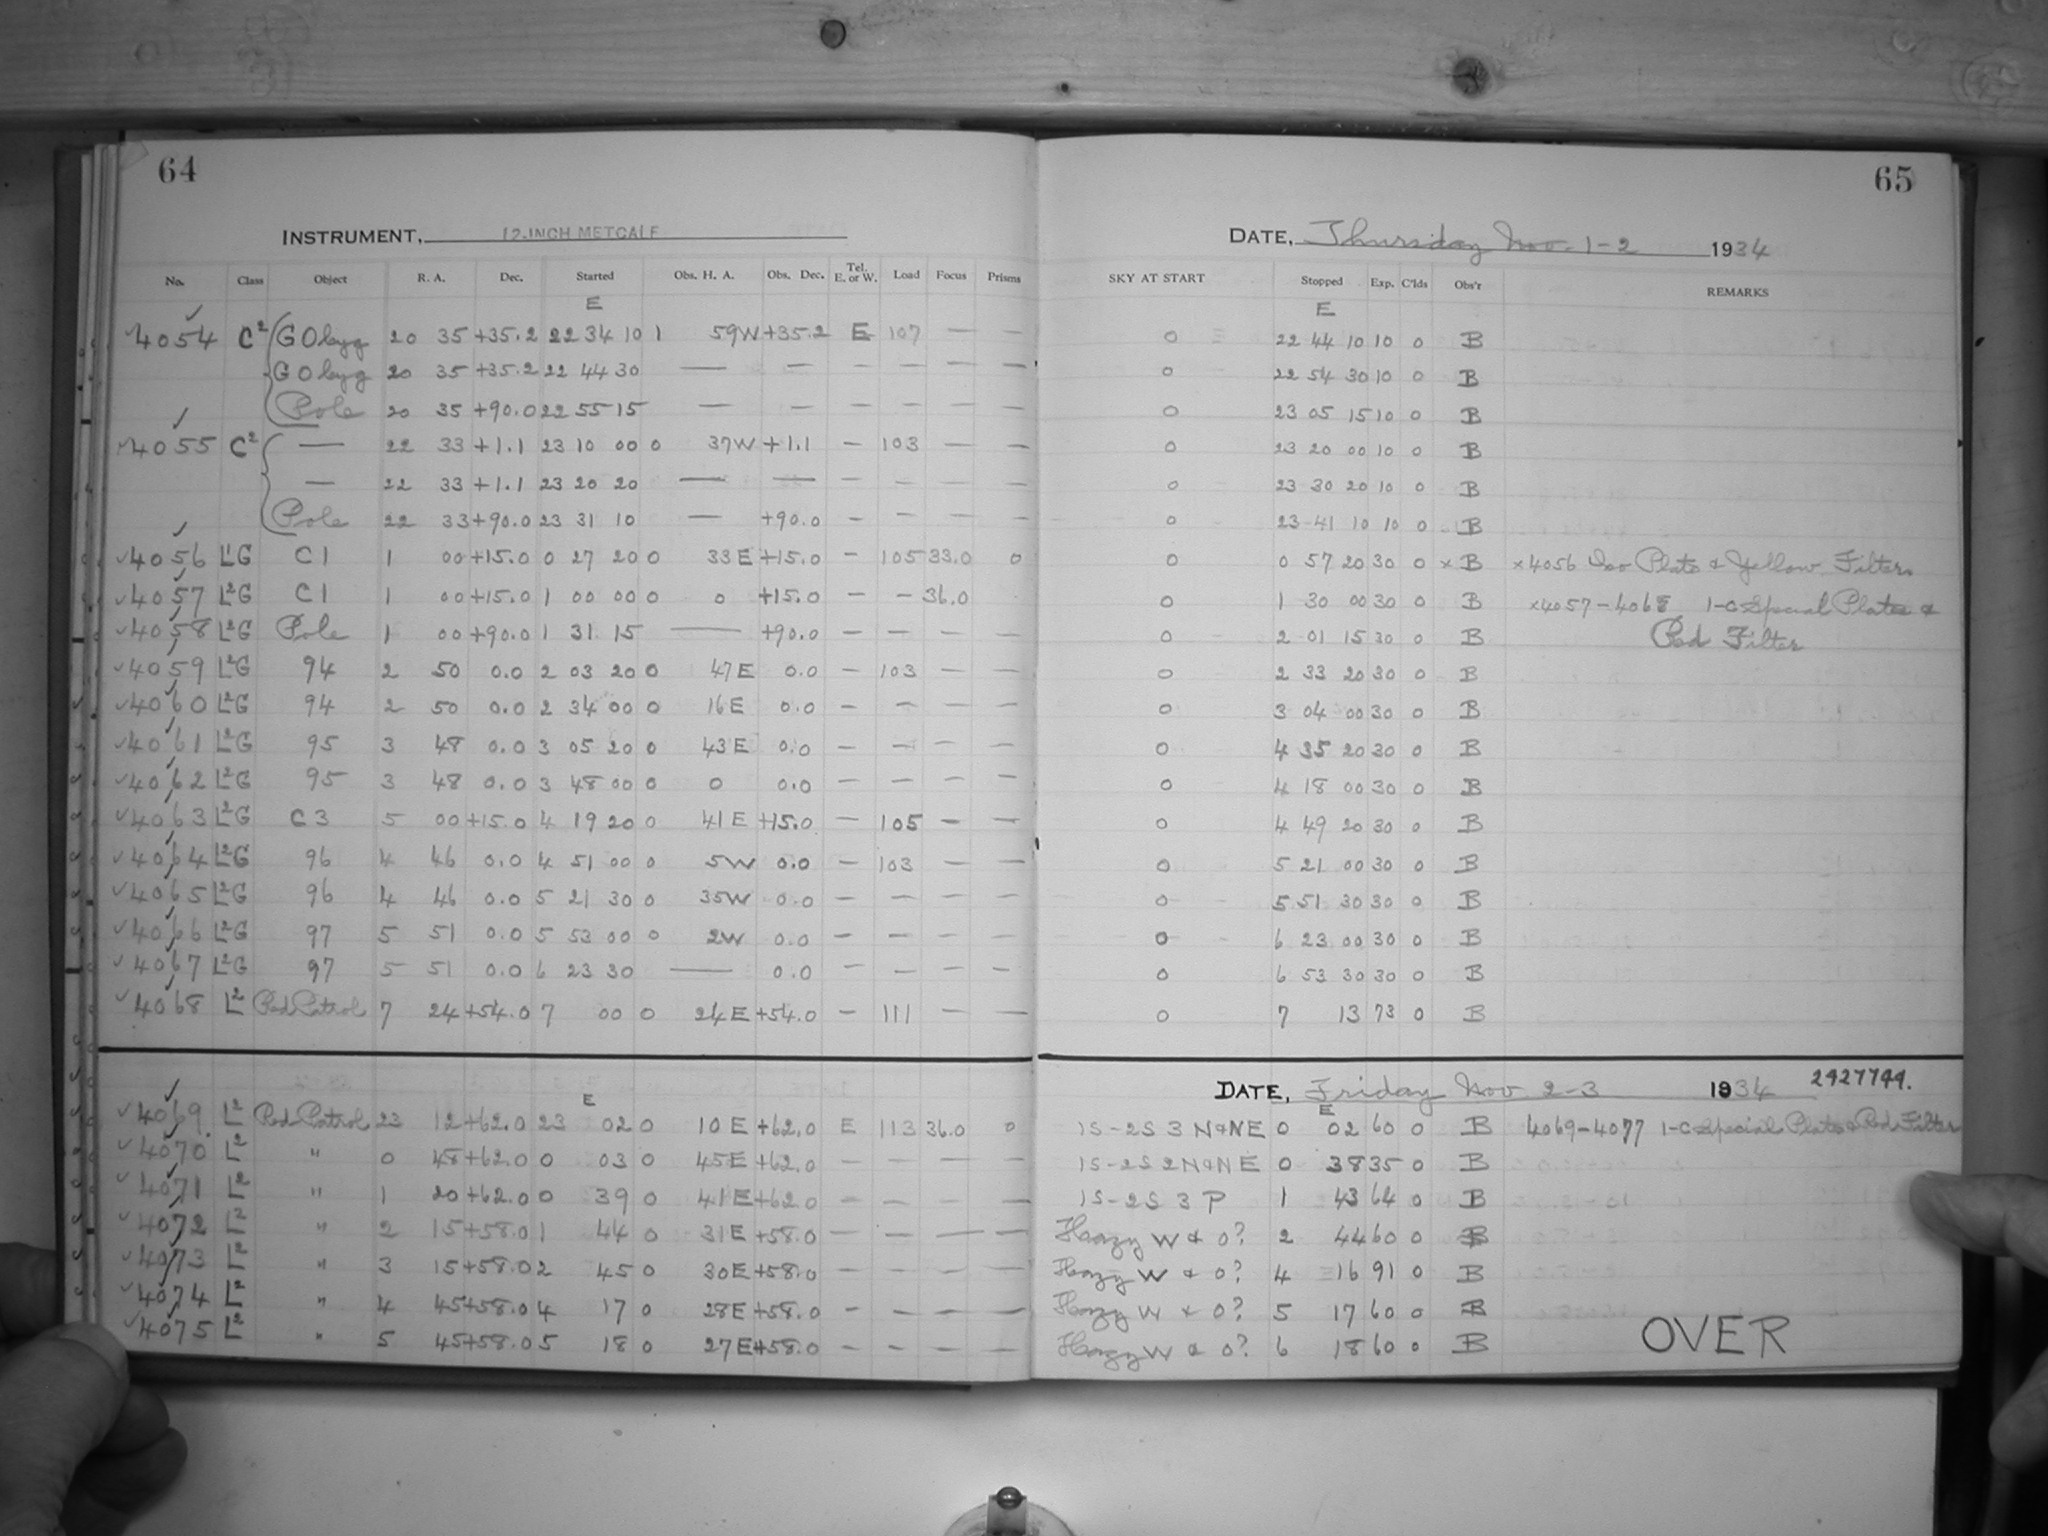 64
65
INSTRUMENT, 12-INCH METCALF
DATE, Thursday Nov. 1-2 1934
No. Class Object R. A. Dec. Started Obs. H. A. Obs. Dec. Tel. E. or W. Load Focus Prisms SKY AT START Stopped Exp. C'lds Obs'r REMARKS
E E
4054 C2 G 0 20 35 +35.2 22 34 10 1 59W +35.2 E 107 — — 0 22 44 10 10 0 B
G 0 20 35 +35.2 22 44 30 — — — — — — 0 22 54 30 10 0 B
Pole 20 35 +90.0 22 55 15 — — — — — — 0 23 05 15 10 0 B
4055 C2 — 22 33 +1.1 23 10 00 0 37W +1.1 — 103 — — 0 23 20 00 10 0 B
— 22 33 +1.1 23 20 20 — — — — — — 0 23 30 20 10 0 B
Pole 22 33 +90.0 23 31 10 — +90.0 — — — — 0 23 41 10 10 0 B
4056 L1G C1 1 00 +15.0 0 27 20 0 33E +15.0 — 105 33.0 0 0 0 57 20 30 0 x B x4056 Iso Plate & Yellow Filter
4057 L2G C1 1 00 +15.0 1 00 00 0 0 +15.0 — — 36.0 0 1 30 00 30 0 B x4057-4068 1-C Special Plates &
4058 L2G Pole 1 00 +90.0 1 31 15 — +90.0 — — — — 0 2 01 15 30 0 B Red Filter
4059 L2G 94 2 50 0.0 2 03 20 0 47E 0.0 — 103 — — 0 2 33 20 30 0 B
4060 L2G 94 2 50 0.0 2 34 00 0 16E 0.0 — — — — 0 3 04 00 30 0 B
4061 L2G 95 3 48 0.0 3 05 20 0 43E 0.0 — — — — 0 4 35 20 30 0 B
4062 L2G 95 3 48 0.0 3 48 00 0 0 0.0 — — — — 0 4 18 00 30 0 B
4063 L2G C3 5 00 +15.0 4 19 20 0 41E +15.0 — 105 — — 0 4 49 20 30 0 B
4064 L2G 96 4 46 0.0 4 51 00 0 5W 0.0 — 103 — — 0 5 21 00 30 0 B
4065 L2G 96 4 46 0.0 5 21 30 0 35W 0.0 — — — — 0 5 51 30 30 0 B
4066 L2G 97 5 51 0.0 5 53 00 0 2W 0.0 — — — — 0 6 23 00 30 0 B
4067 L2G 97 5 51 0.0 6 23 30 — 0.0 — — — — 0 6 53 30 30 0 B
4068 L2 Red Patrol 7 24 +54.0 7 00 0 24E +54.0 — 111 — — 0 7 13 73 0 B
DATE, Friday Nov 2-3 1934 2427744.
E E
4069 L2 Red Patrol 23 12 +62.0 23 02 0 10E +62.0 E 113 36.0 0 1S-2S 3 N&NE 0 02 60 0 B 4069-4077 1-C Special Plate & Red Filter
4070 L2 " 0 48 +62.0 0 03 0 45E +62.0 — — — — 1S-2S 2 N&NE 0 38 35 0 B
4071 L2 " 1 20 +62.0 0 39 0 41E +62.0 — — — — 1S-2S 3 P 1 43 64 0 B
4072 L2 " 2 15 +58.0 1 44 0 31E +58.0 — — — — Hazy W & 0? 2 44 60 0 B
4073 L2 " 3 15 +58.0 2 45 0 30E +58.0 — — — — Hazy W & 0? 4 16 91 0 B
4074 L2 " 4 45 +58.0 4 17 0 28E +58.0 — — — — Hazy W & 0? 5 17 60 0 B
4075 L2 " 5 45 +58.0 5 18 0 27E +58.0 — — — — Hazy W & 0? 6 18 60 0 B
OVER